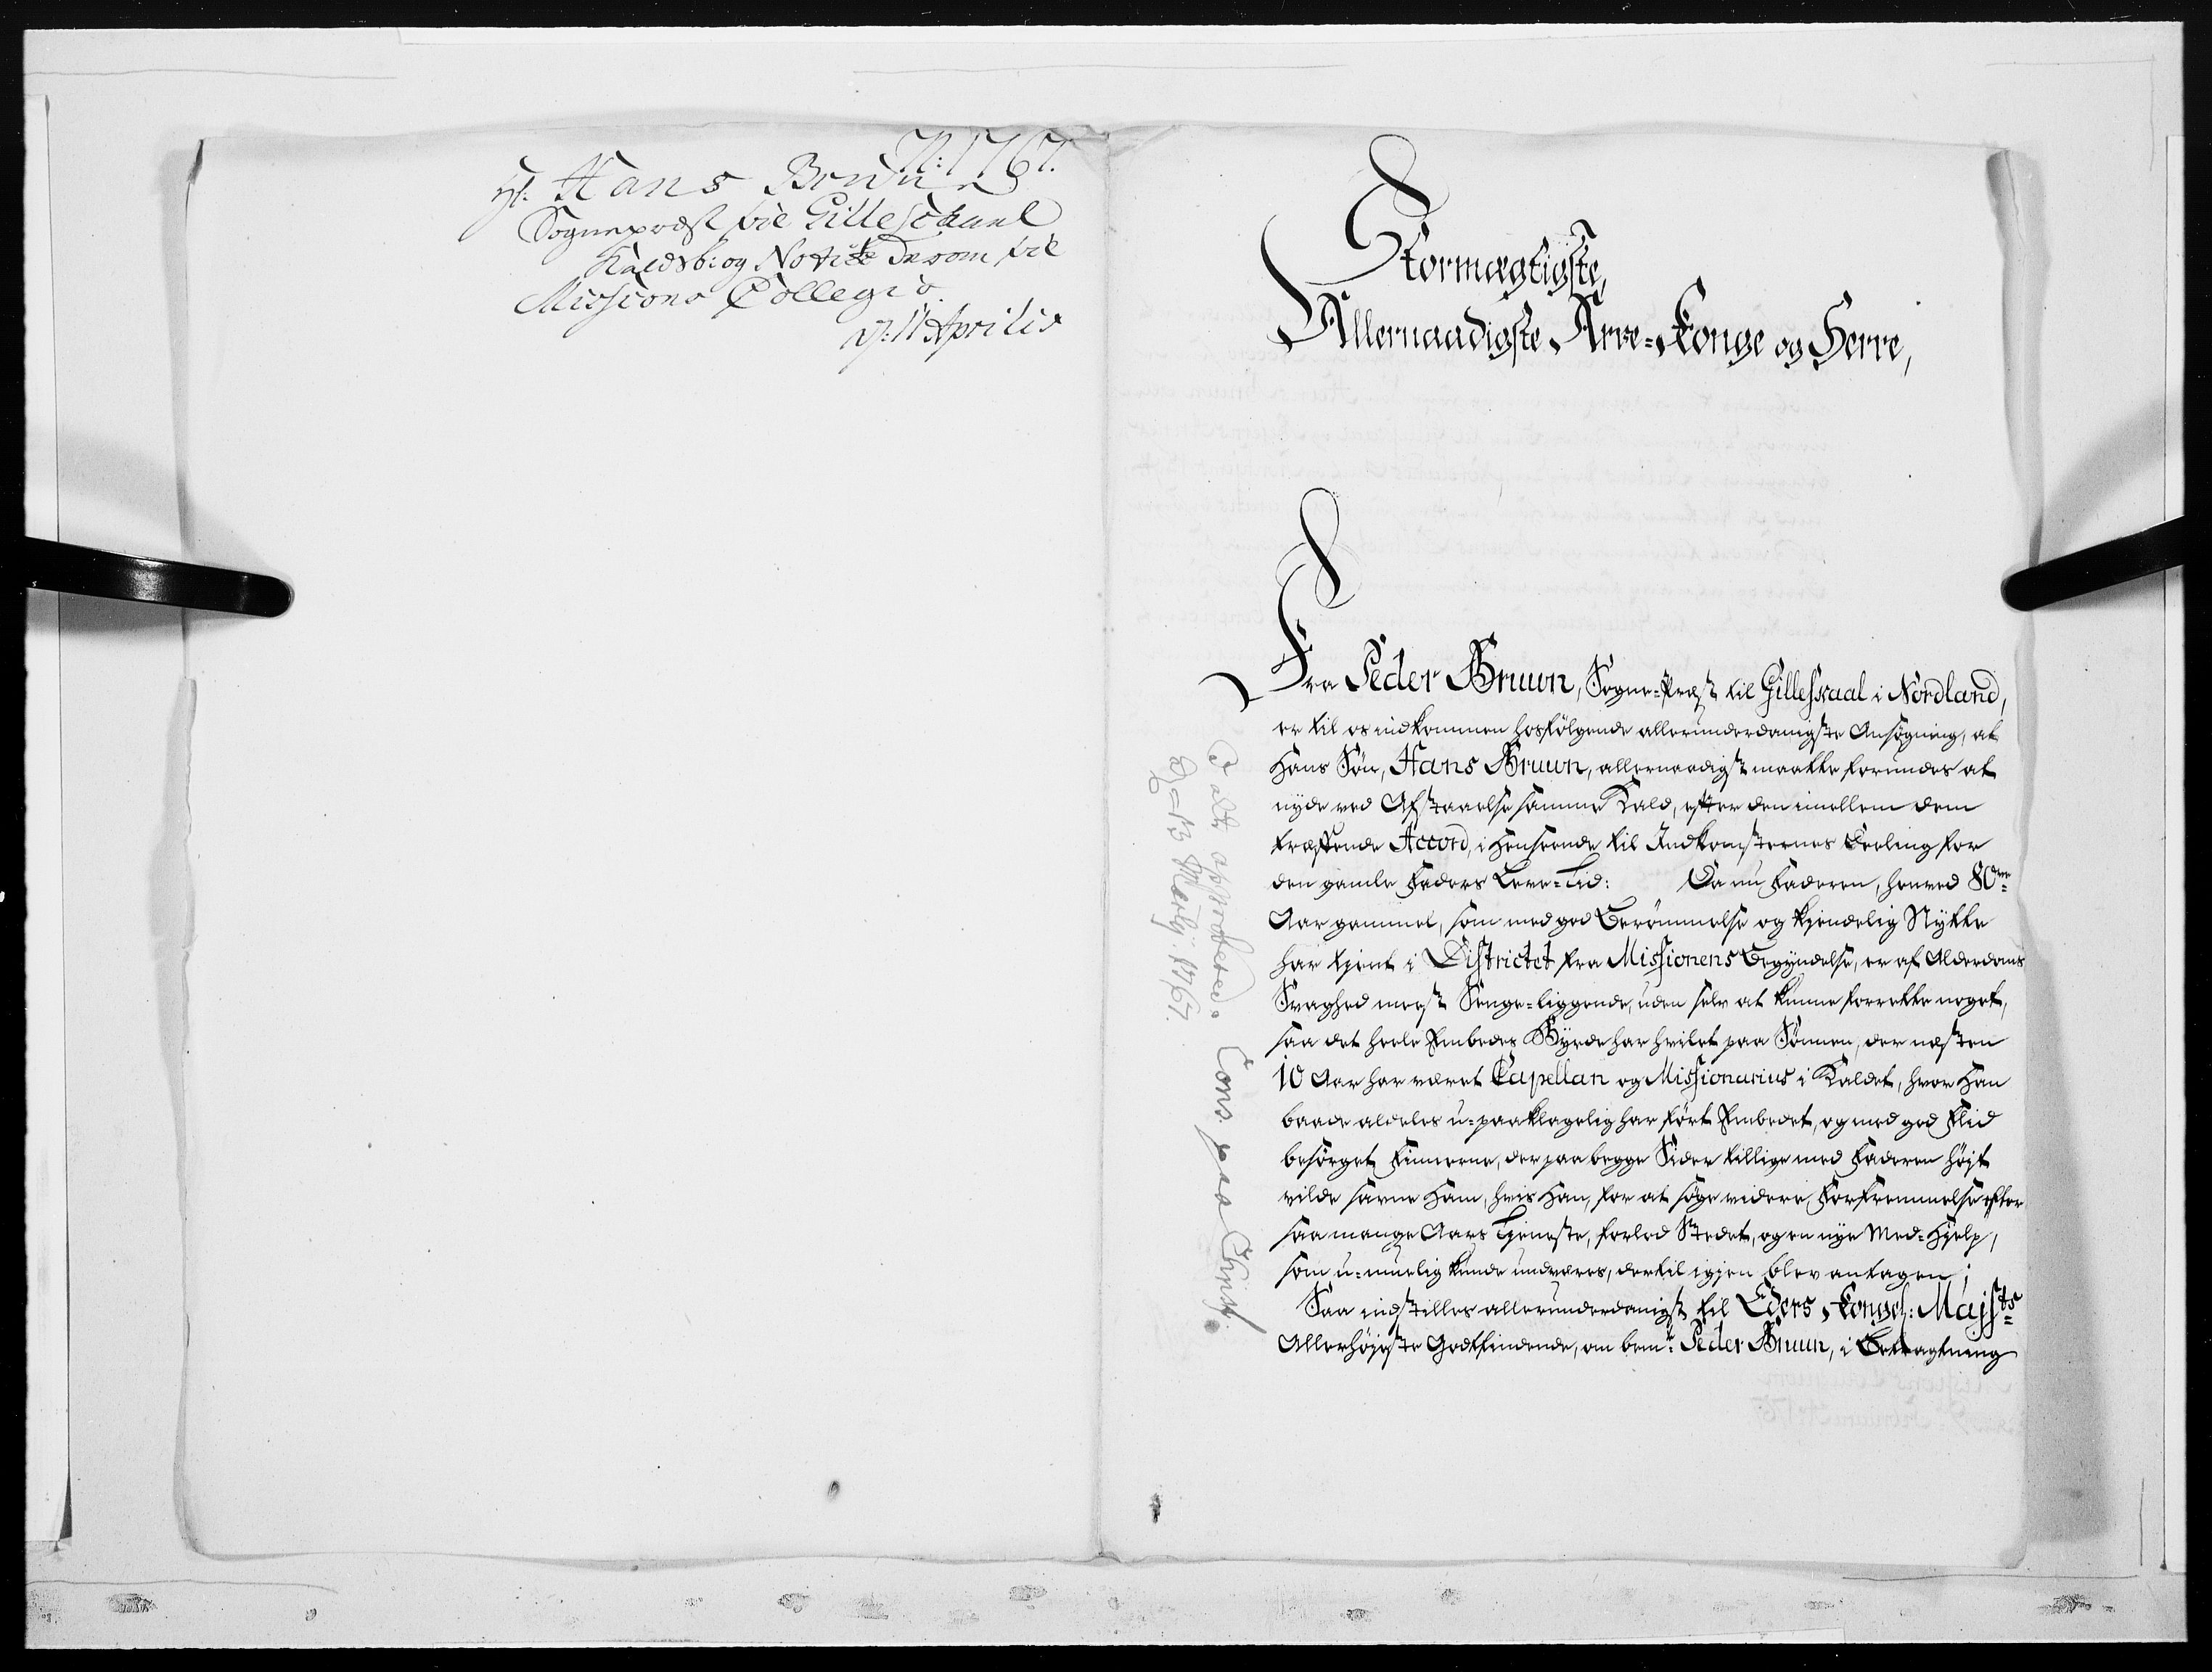 A: 1767.
Hr: Hans Bruun
Sognepræst til Gilleschaal
Kaldsb: og Notice derom til
Missions Collegio
d: 11 Aprilis
Stormægtigste,
Allernaadigste Arve-Konge og Herre,
Fra Peder Bruun, Sogne-Præst til Gilleskaal i Nordland,
er til os indkommen hosfölgende allerunderdanigste Ansögning, at
Hans Sön, Hans Bruun, allernaadigst maatte forundes at
nyde ved Afstaaelse samme Kald, efter den imellem dem
træffende Accord, i Henseende til Indkomsternes Deeling for
den gamle Faders Leve-Tid: Da nu Faderen, henved 80ve
Aar gammel, som med god Berömmelse og kiendelig Nytte
har tient i Districtet fra Missionens Begyndelse, er af Alderdoms
Svaghed meest Senge-liggende, uden selv at kunne forrette noget,
saa det heele Embedes Byrde har hvilet paa Sönnen, der næsten
10 Aar har været Capellan og Missionarius i Kaldet, hvor Han
baade aldeles u-paaklagelig har fört Embedet, og med god Flid
besörget Finnerne, der paa begge Sider tillige med Faderen höjt
vilde savne Ham, hvis Han, for at söge videre Forfremmelse efter
saa mange Aars Tjeneste, forlod Stedet, og en nye Med-Hjelp,
som u-muelig kunde undværes, dertil igjen blev antagen;
Saa indstilles allerunderdanigst til Eders Kongel: Majsts
Allerhöjeste Godtfindende, om bemte Peder Bruun, i Betragtning
I alt approberet. Cons: paa Christ:
D. 13 Martj. 1767.